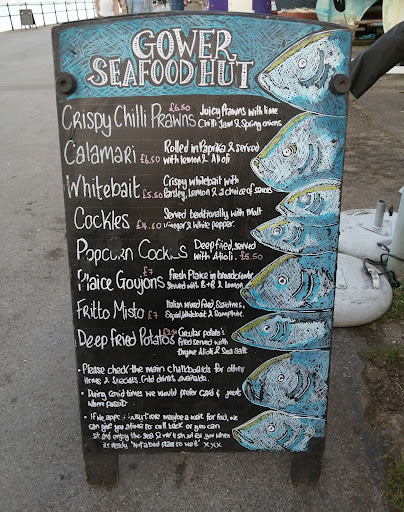 GOWER
SEAFOOD HUT
Crispy Chilli Prawns £6.50 Juicy Prawns with lime
Chilli Jam & Spring onions
Calamari £6.50 Rolled in Paprika & served
with lemon & Aioli
Whitebait £5.50 Crispy whitebait with
Parsley, Lemon & a choice of sauces
Cockles £4.50 Served traditionally with Malt
Vinegar & white pepper
Popcorn Cockles Deep fried, served
with Aioli. £5.50
Plaice Goujons £7 Fresh Plaice in breadcrumbs
Served with & Lemon
Fritto Misto £7 Italian mixed fried, Sardines,
Squid, Whitebait & Samphire
Deep Fried Potatos Circular potato's
fried served with
thyme Aioli & Sea Salt
• Please check the main Chalkboards for other
items & Specials. Cold drinks available.
• During Covid times we would prefer card &
where possible
• If we maybe a wait for food, we
can give you a time to call back or you can
sit and enjoy the sea & we'll shout you when
its ready "Not a bad place to wait" xxx